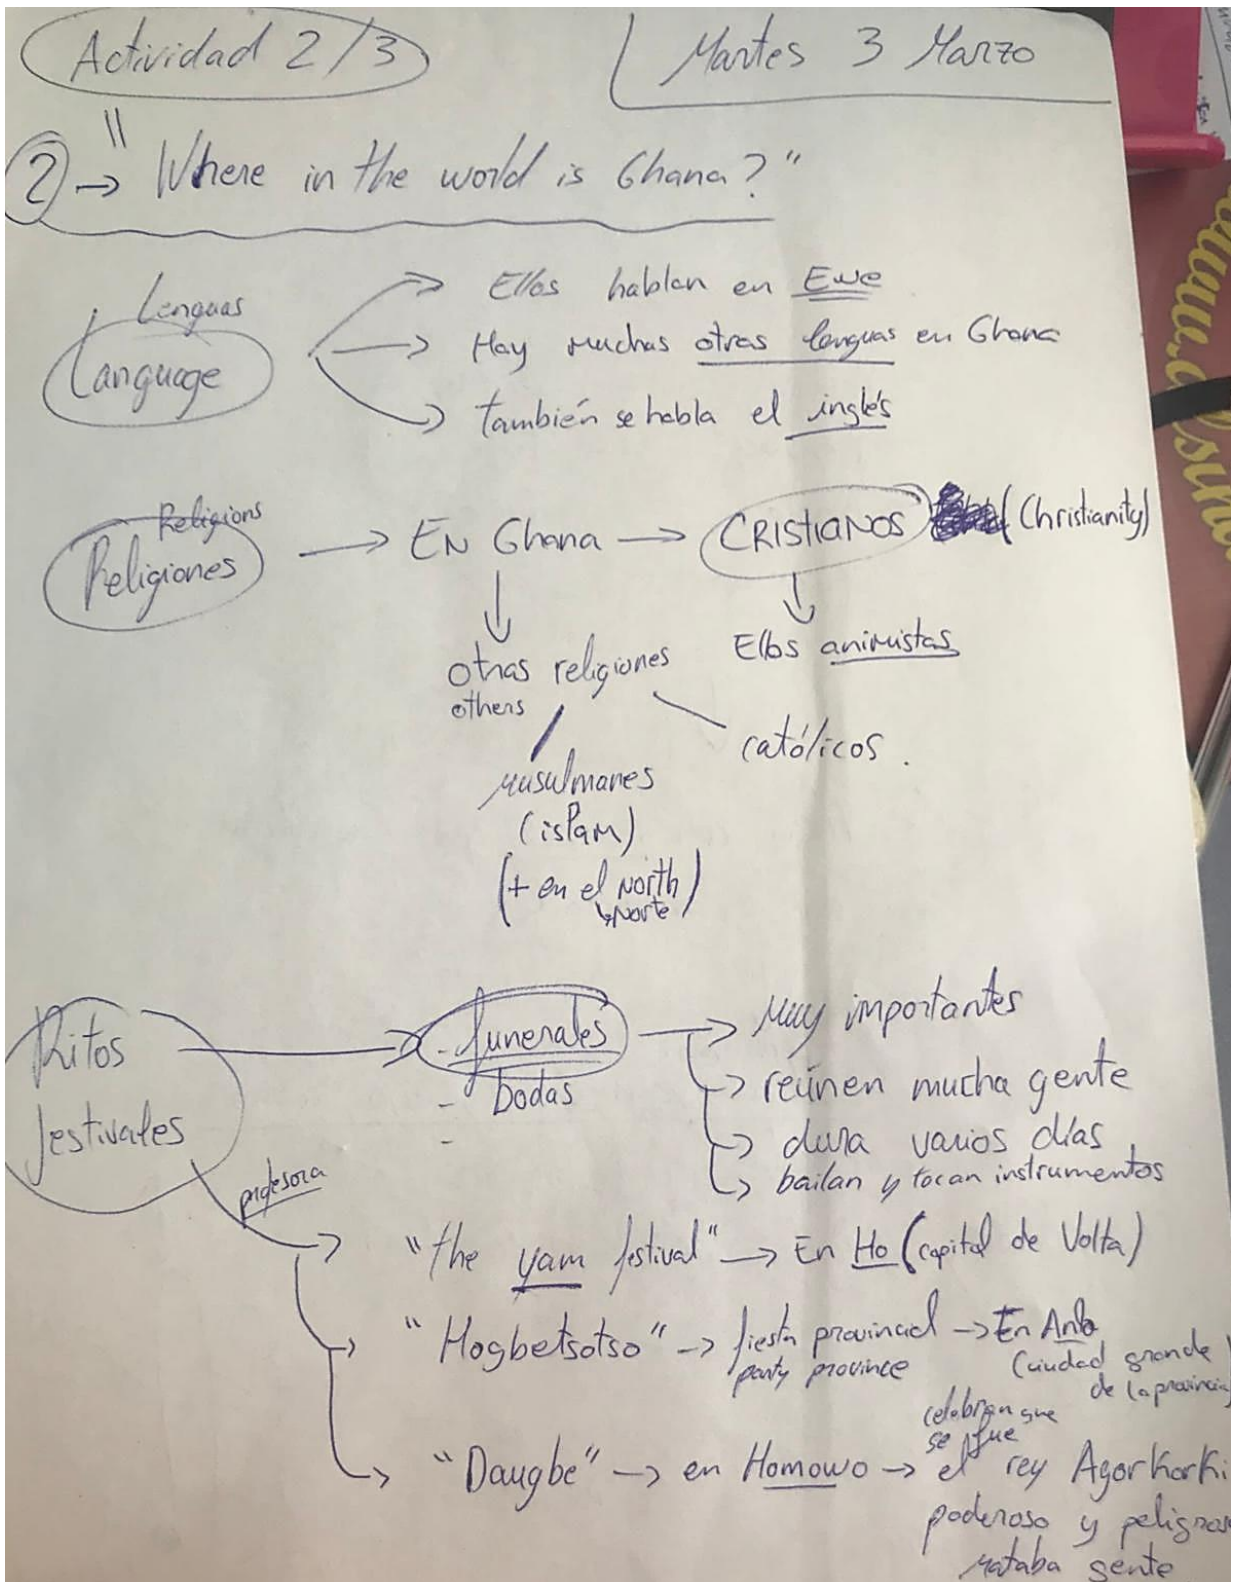 Actividad 2/3
Martes 3 Marzo
2 → "Where in the world is Ghana?"
Lenguas
Language
→ Ellos hablan en Ewe
→ Hay muchas otras lenguas en Ghana
→ también se habla el inglés
Religions
Religiones → EN Ghana → CRISTIANOS (Christianity)
Ellos animistas
otras religiones
others
católicos.
musulmanes
(islam)
(+ en el North)
↳ Norte
Ritos
festivales
- funerales
- bodas
-
→ Muy importantes
→ reúnen mucha gente
→ dura varios días
→ bailan y tocan instrumentos
profesora
→ "the yam festival" → En Ho (capital de Volta)
→ "Hogbetsotso" → fiesta provincial → En Anlo
party province
(ciudad grande
de la provincia)
celebran que
se fue
→ "Daugbe" → en Homowo → el rey Agorkorki
poderoso y
mataba gente